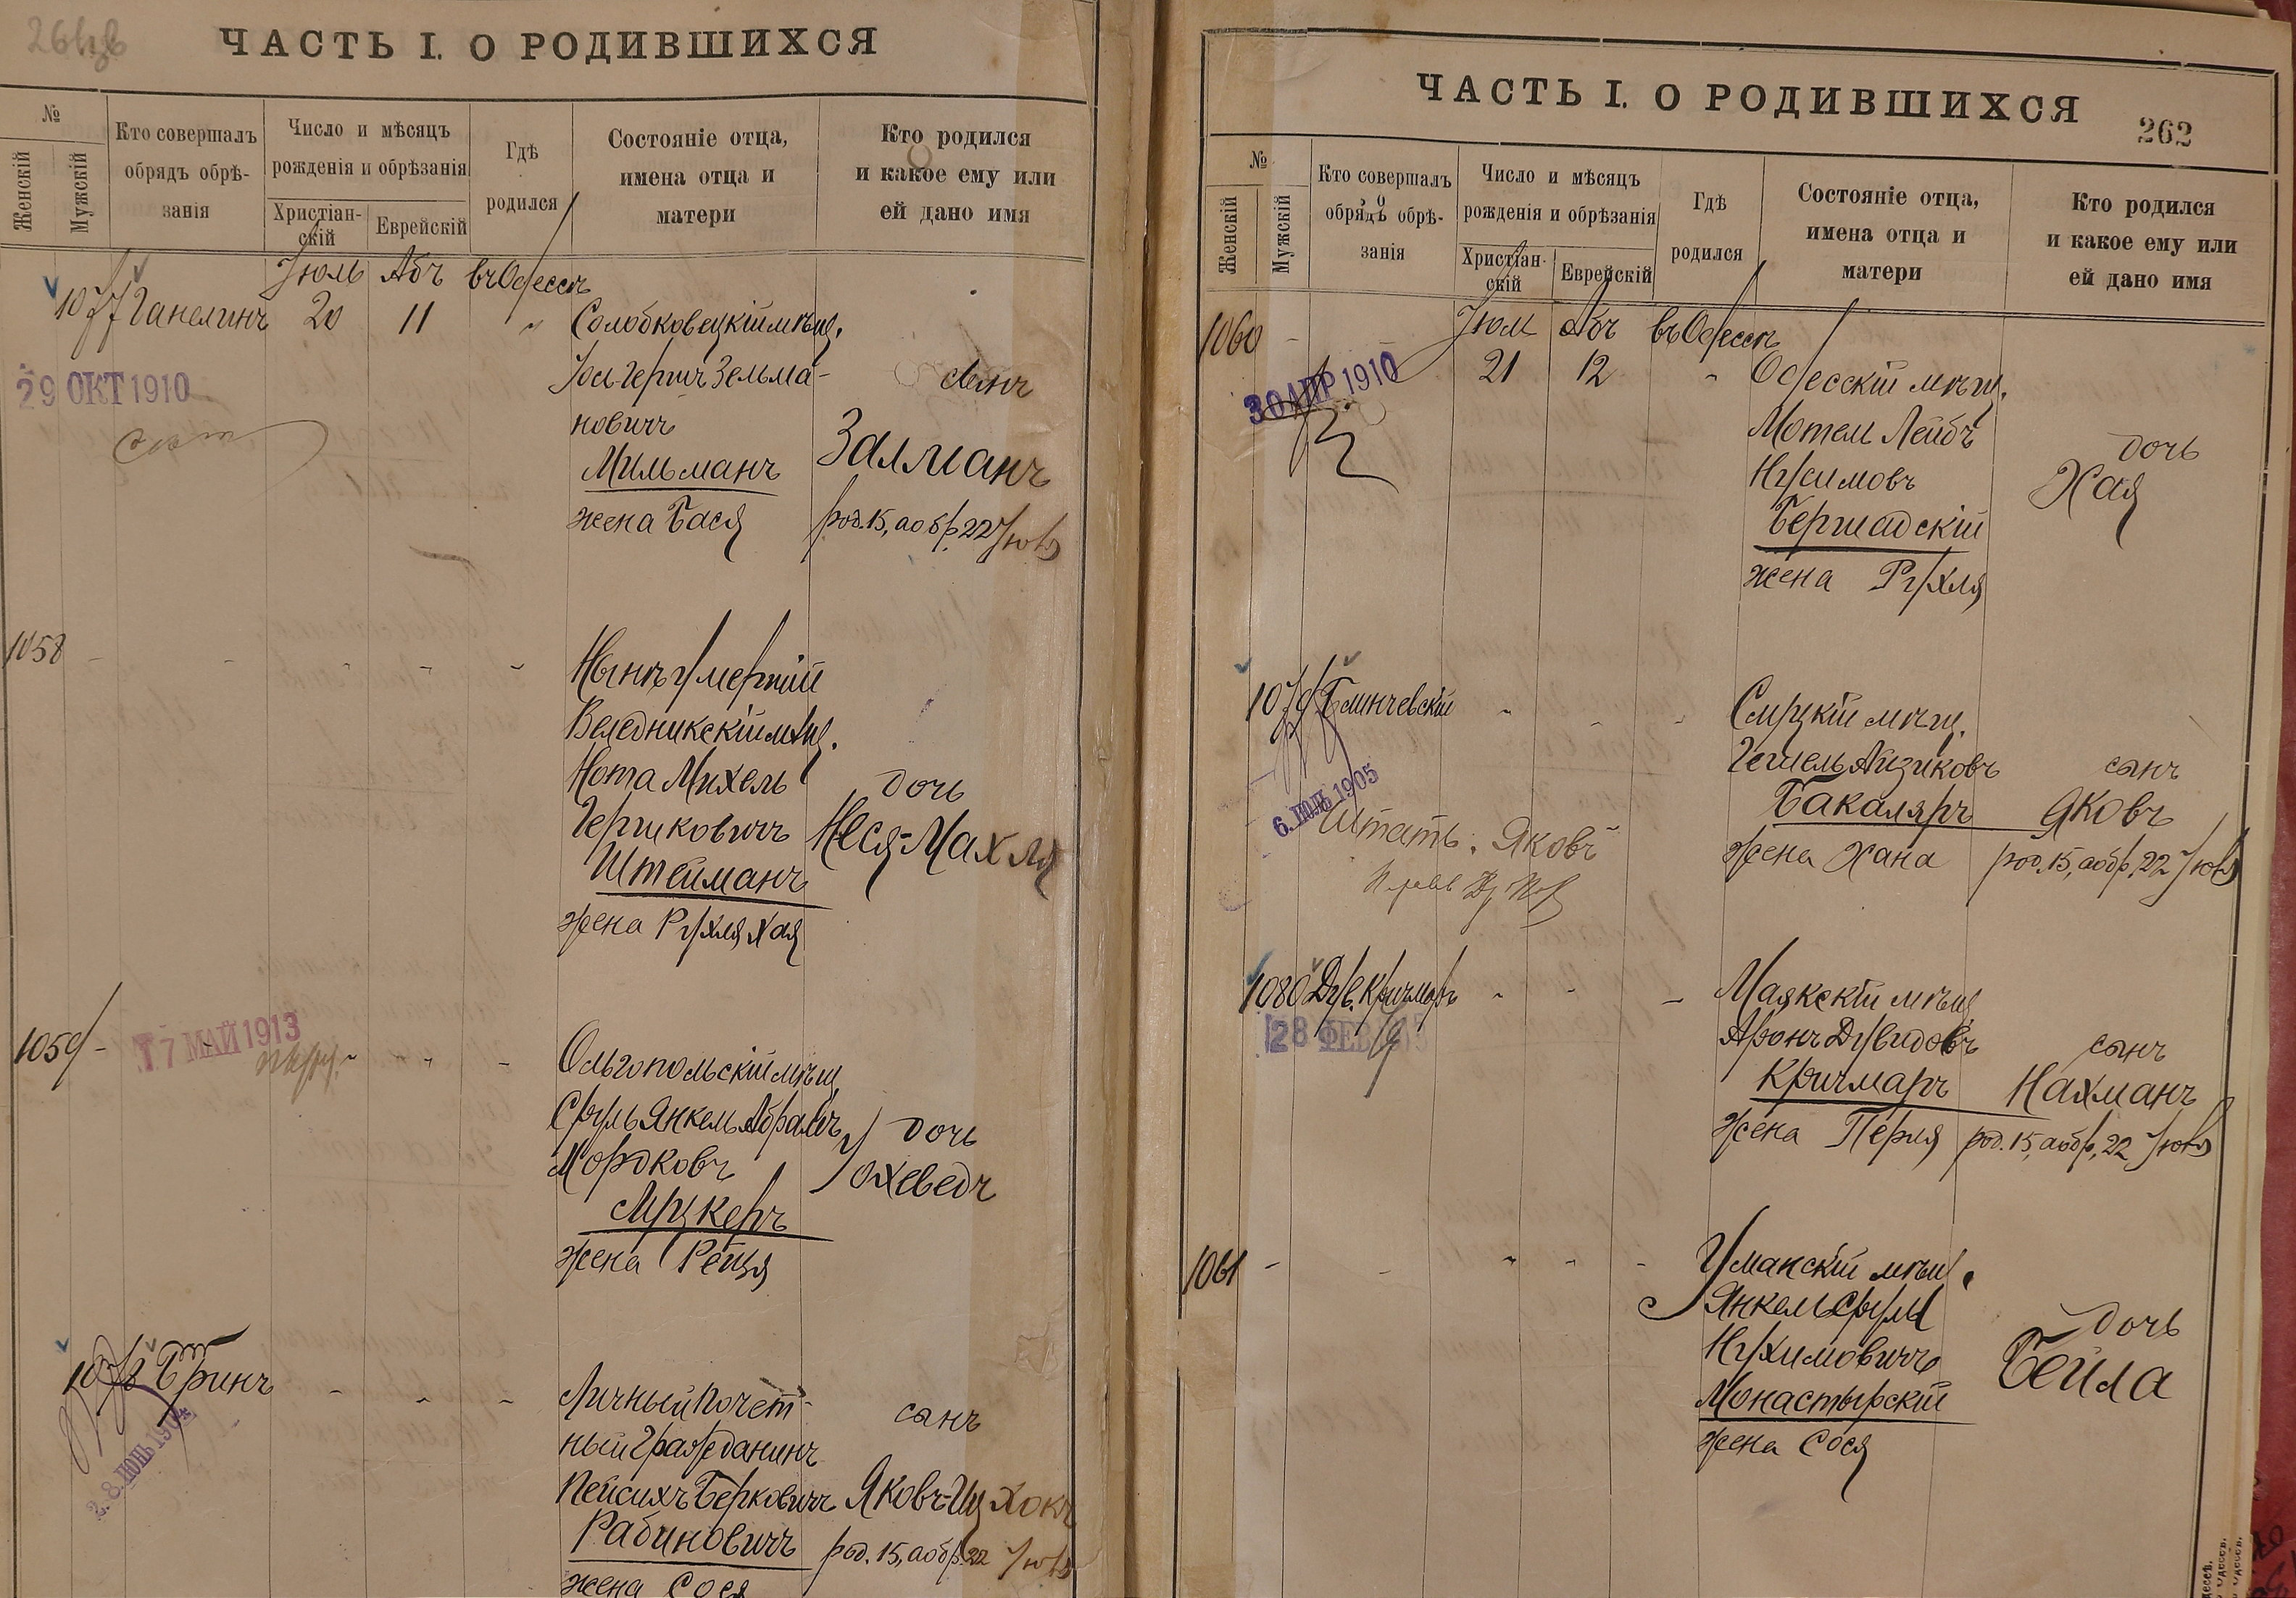 ЧАСТЬ I. О РОДИВШИХСЯ
№
Женскій
Мужскій
Кто совершалъ
обрядъ обрѣ-
занія
Число и мѣсяцъ
рожденія и обрѣзанія
Христіан-
скій
Еврейскій
Гдѣ
родился
Состояніе отца,
имена отца и
матери
Кто родился
и какое ему или
ей дано имя
Іюль Абъ въ Одессѣ
1077 Ганелинъ 20 11 "
Солобковецкій мѣщ.
Іось-Гершъ Зельма-
новичъ
Мильманъ
жена Бася
сынъ
Залманъ
род. 15, а обр. 22 Іюля
29 ОКТ 1910
1058
Нынѣ умершій
Веледникскій мѣщ.
Нота Михель
Гершковичъ
Штейманъ
жена Рухля Хая
дочь
Неся-Махля
1059
17 МАЙ 1913
Ольгопольскій мѣщ.
Сруль Янкель Абрамъ
Мордковъ
Муцкеръ
жена Рейзя
дочь
Іохеведъ
1078 Бринъ
28 ІЮНЬ 1904
Личный почет-
ный гражданинъ
Пейсихъ Берковичъ
Рабиновичъ
жена Сося
сынъ
Яковъ-Ицхокъ
род. 15, а обр. 22 Іюля
ЧАСТЬ I. О РОДИВШИХСЯ
262
№
Женскій
Мужскій
Кто совершалъ
обрядъ обрѣ-
занія
Число и мѣсяцъ
рожденія и обрѣзанія
Христіан-
скій
Еврейскій
Гдѣ
родился
Состояніе отца,
имена отца и
матери
Кто родился
и какое ему или
ей дано имя
1060
Іюль Абъ въ Одессѣ
21 12 "
30 АПР 1910
Одесскій мѣщ.
Мотель Лейбъ
Нусимовъ
Бершадскій
жена Рухля
дочь
Хая
1079 Блинчевскій
6. ІЮЛЬ 1905
Яковъ
мѣщ.
Гешель Айзиковъ
Бакаляръ
жена Хана
сынъ
Яковъ
род. 15, а обр. 22 Іюля
1080 Дув. Кричмаръ
28 ФЕВ
Маякскій мѣщ.
Аронъ Дувидовъ
Кричмаръ
жена Перля
сынъ
Нахманъ
род. 15, а обр. 22 Іюля
1061
Уманскій мѣщ.
Янкель Сруль
Нухимовичъ
Монастырскій
жена Сося
дочь
Бейла